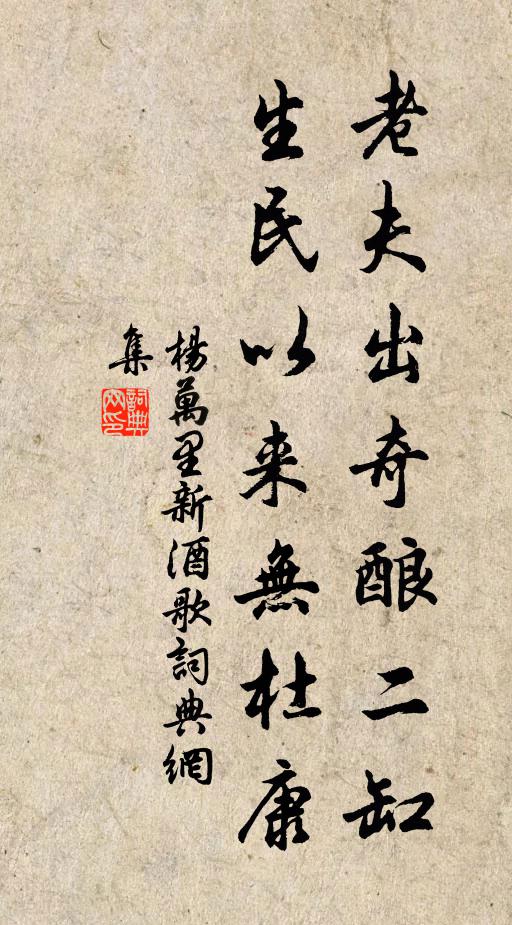 老夫出奇酿二缸
生民以来無杜康
楊萬里新酒歌詞典網
集
詞典网印